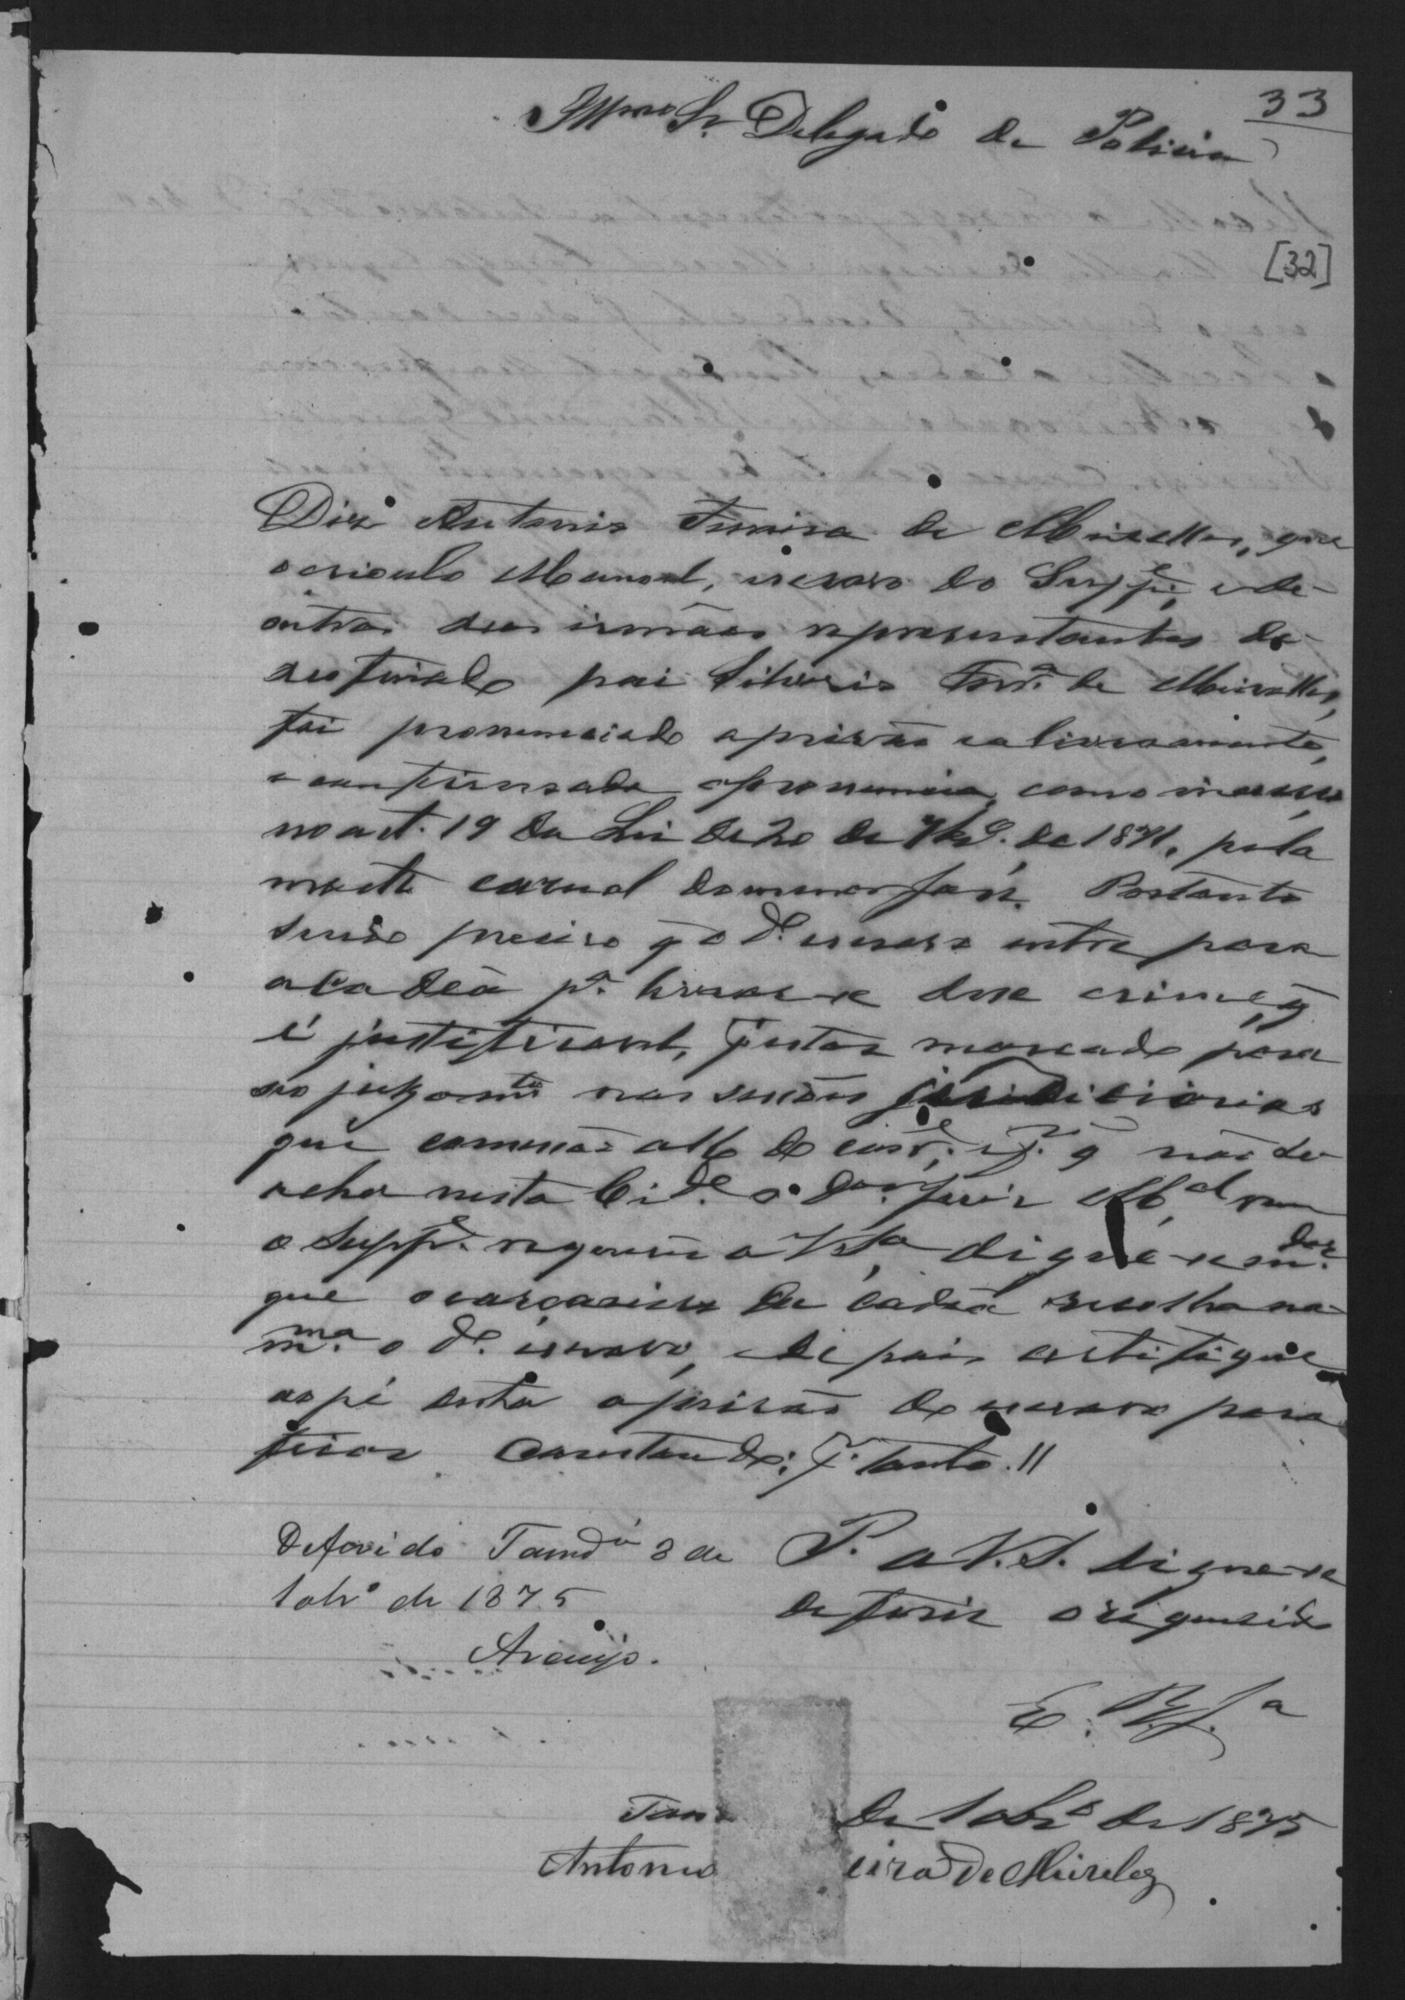 33
Illmo Sr Delegado de Policia
[32]
Diz Antonio Ferreira de Meirelles, que
o crioulo Manoel, escravo do Suppe, e de
outros seus irmãos representantes de
seo finado pai Liberio Ferra de Meirelles,
foi pronunciado a prisão e a livramento,
e confirmada a pronuncia, como incurso
no art. 19 da Lei de 20 de 7bro. de 1871, pela
morte casual do menor José. Portanto
sendo preciso q o do. escravo entre para
a cadêa pa. livrar-se desse crime, q
é justificavel, e estar marcado para
seo julgamto nas sessões judiciarias
que começão a 16 do corre., e pr. q não se
acha nesta Cide. o Dor. Juiz Mal, vem
o Suppe. requerer a V. Sa digne-se mdar.
que o carcereiro da cadêa recolha na
mma. o do. escravo, e depois certifique
ao pé desta a prisão do escravo para
ficar constando; pr. tanto. //
P. a V. S. digne-se
deferir o requerido
Deferido Tamdua 3 de
10bro de 1875
Araujo.
E. R. Ma
Tam de 10bro de 1875
Antonio eira de Mireles